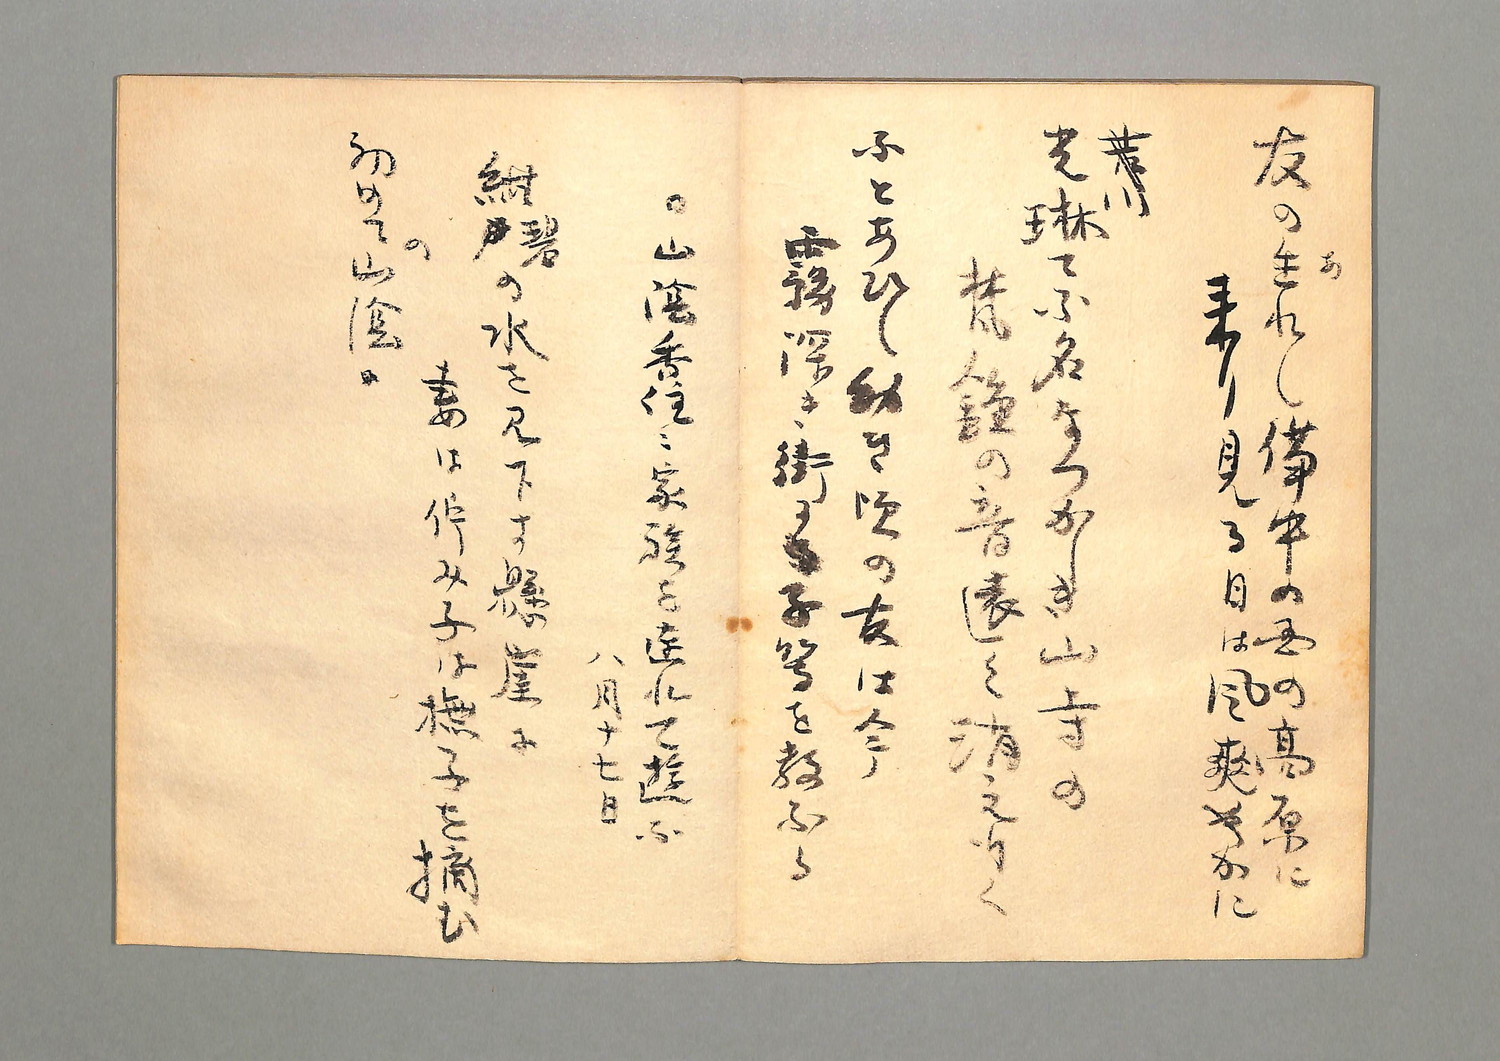 友の生れし備中の西の高原に
あ
来り見る日は風爽やかに
光琳てふ名なつかしき山寺の
梵鐘の音遠く消えゆく
ふとあひし幼き頃の友は今
霧深き街に子等を教ふる
○山陰香住に家族を連れて遊ぶ
八月十七日
紺碧の水を見下す懸崖に
妻は佇み子は撫子を摘む
初めての山陰。